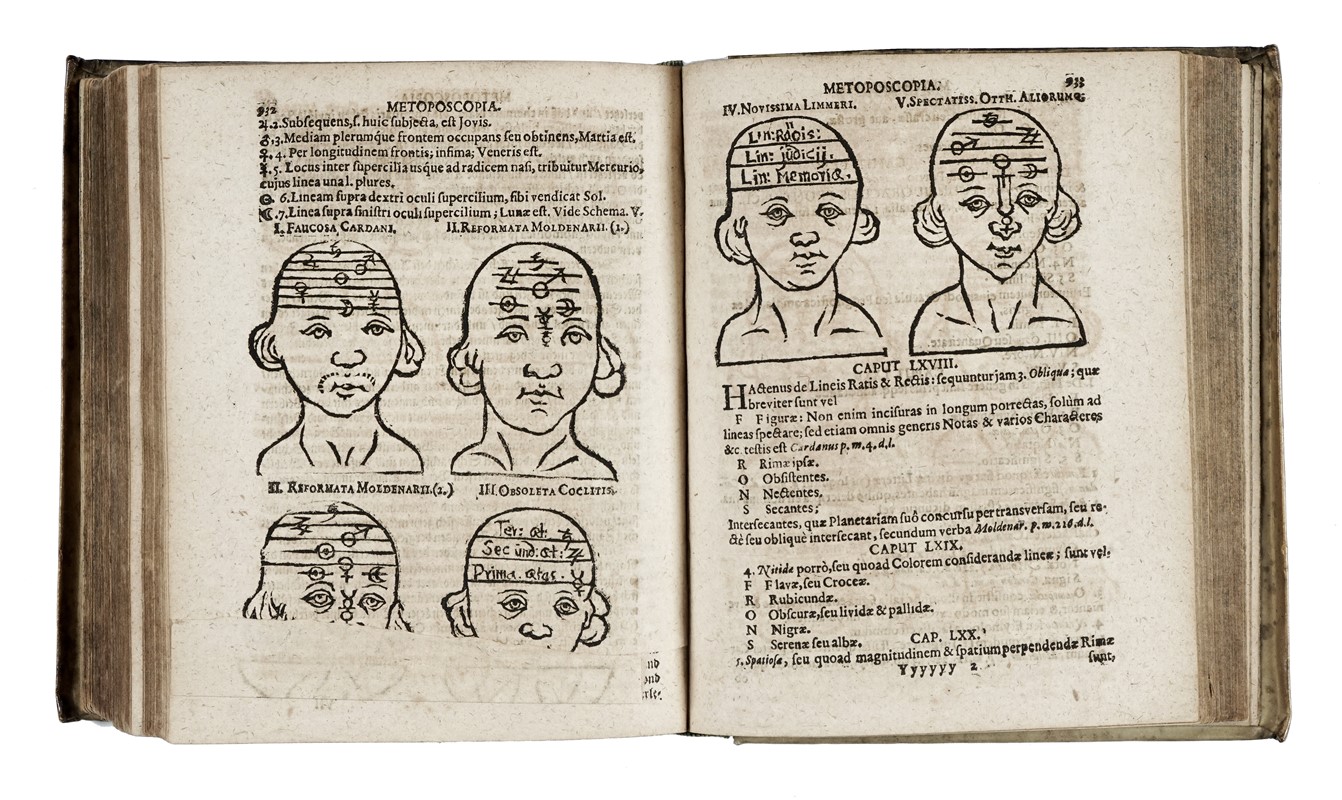 932
METOPOSCOPIA.
♃.2. Subsequens, s. huic subjecta, est Jovis.
♂.3. Mediam plerumque frontem occupans seu obtinens, Martia est.
♀.4. Per longitudinem frontis; infima; Veneris est.
☿.5. Locus inter supercilia usque ad radicem nasi, tribuitur Mercurio,
cujus linea una l. plures.
☉ 6. Lineam supra dextri oculi supercilium, sibi vendicat Sol.
☾.7. Linea supra sinistri oculi supercilium; Lunæ est. Vide Schema. V.
I. FAUCOSA CARDANI. II. REFORMATA MOLDENARII. (1.)
II. REFORMATA MOLDENARII. (2.) III. OBSOLETA COCLITIS.
Ter: æt: ♄
Secund: æt: ♃
Prima. ætas. ☿
METOPOSCOPIA. 933
IV. NOVISSIMA LIMMERI. V. SPECTATISS. OTTH. ALIORUMQ;
Lin: Rãois:
Lin: jũdicij.
Lin: Memoriæ.
CAPUT LXVIII.
HActenus de Lineis Ratis & Rectis: sequuntur jam 3. Obliquæ; quæ
breviter sunt vel
F Figuræ: Non enim incisuras in longum porrectas, solùm ad
lineas spectare; sed etiam omnis generis Notas & varios Characteres
&c. testis est Cardanus p. m. 4. d. l.
R Rimæ ipsæ.
O Obsistentes.
N Nectentes.
S Secantes;
Intersecantes, quæ Planetariam suô concursu per transversam, seu re-
ctè seu obliquè intersecant, secundum verba Moldenar. p. m. 216. d. l.
CAPUT LXIX.
4. Nitidæ porrò, seu quoad Colorem considerandæ lineæ; sunt vel:
F Flavæ, seu Croceæ.
R Rubicundæ.
O Obscuræ, seu lividæ & pallidæ.
N Nigræ.
S Serenæ seu albæ.
CAP. LXX.
5. Spatiosæ, seu quoad magnitudinem & spatium perpendendæ Rimæ
Yyyyyy 2 sunt,